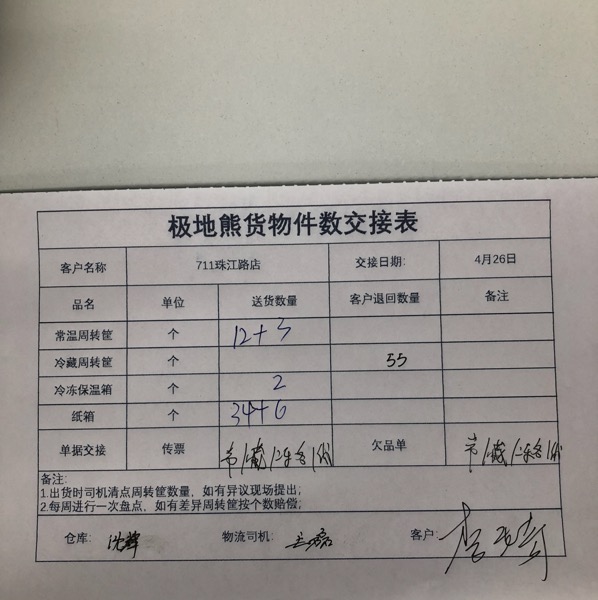 极地熊货物件数交接表
客户名称 711珠江路店 交接日期: 4月26日
品名 单位 送货数量 客户退回数量 备注
常温周转筐 个 12+3
冷藏周转筐 个 55
冷冻保温箱 个 2
纸箱 个 34+6
单据交接 传票 欠品单
备注:
1.出货时司机清点周转筐数量,如有异议现场提出;
2.每周进行一次盘点,如有差异周转筐按个数赔偿;
仓库: 沈辉 物流司机: 客户: